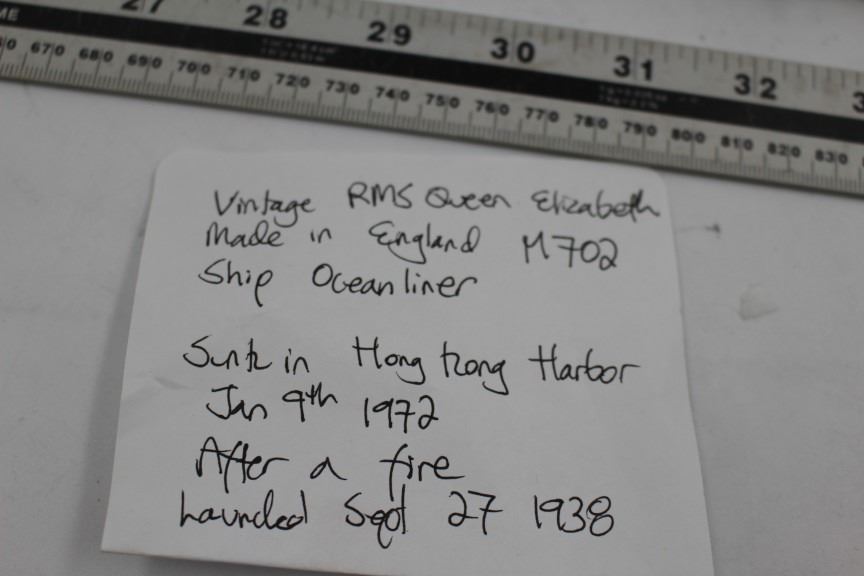 27 28 29 30 31 32 3
670 680 690 700 710 720 730 740 750 760 770 780 790 800 810 820 830
Vintage RMS Queen Elizabeth
Made in England M702
Ship Ocean liner
Sunk in Hong Kong Harbor
Jan 9th 1972
After a fire
Launched Sept 27 1938